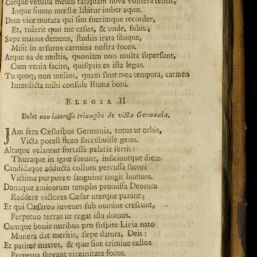 Corque vetusta meum tanquam nova vulnera sentit,
Inque sinum mœstæ labitur imber aquæ.
Dum vice mutata qui sim fuerimque recordor,
Et, tulerit quo me casus, & unde, subit;
Sæpe manus demens, studiis irata sibique,
Misit in arsuros carmina nostra focos.
Atque ea de multis, quoniam non multa supersunt,
Cum venia facito, quisquis es ista legas.
Tu quoque non melius, quam sunt mea tempora, carmen
Interdicta mihi consule Roma boni.
ELEGIA II
Dolet non interesse triumpho de victa Germania,
JAm fera Cæsaribus Germania, totus ut orbis,
Victa potest flexo succubuisse genu.
Altaque velantur fortasse palatia sertis:
Thuraque in igne sonant, inficiuntque diem.
Candidaque adducta collum percussa securi
Victima purpureo sanguine tingit humum.
Donaque amicorum templis promissa Deorum
Reddere victores Cæsar uterque parant;
Et qui Cæsareo juvenes sub nomine crescunt,
Perpetuo terras ut regat ista domus.
Cumque bonis nuribus pro sospite Livia nato
Munera dat meritis, sæpe datura, Deis:
Et pariter matres, & quæ sine crimine castos
Perpetua servant virginitate focos.